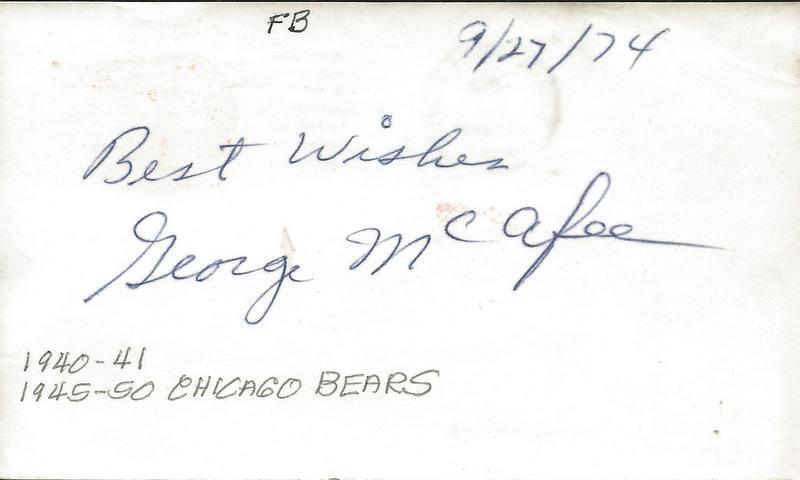 FB
9/27/74
Best Wishes
George McAfee
1940-41
1945-50 CHICAGO BEARS